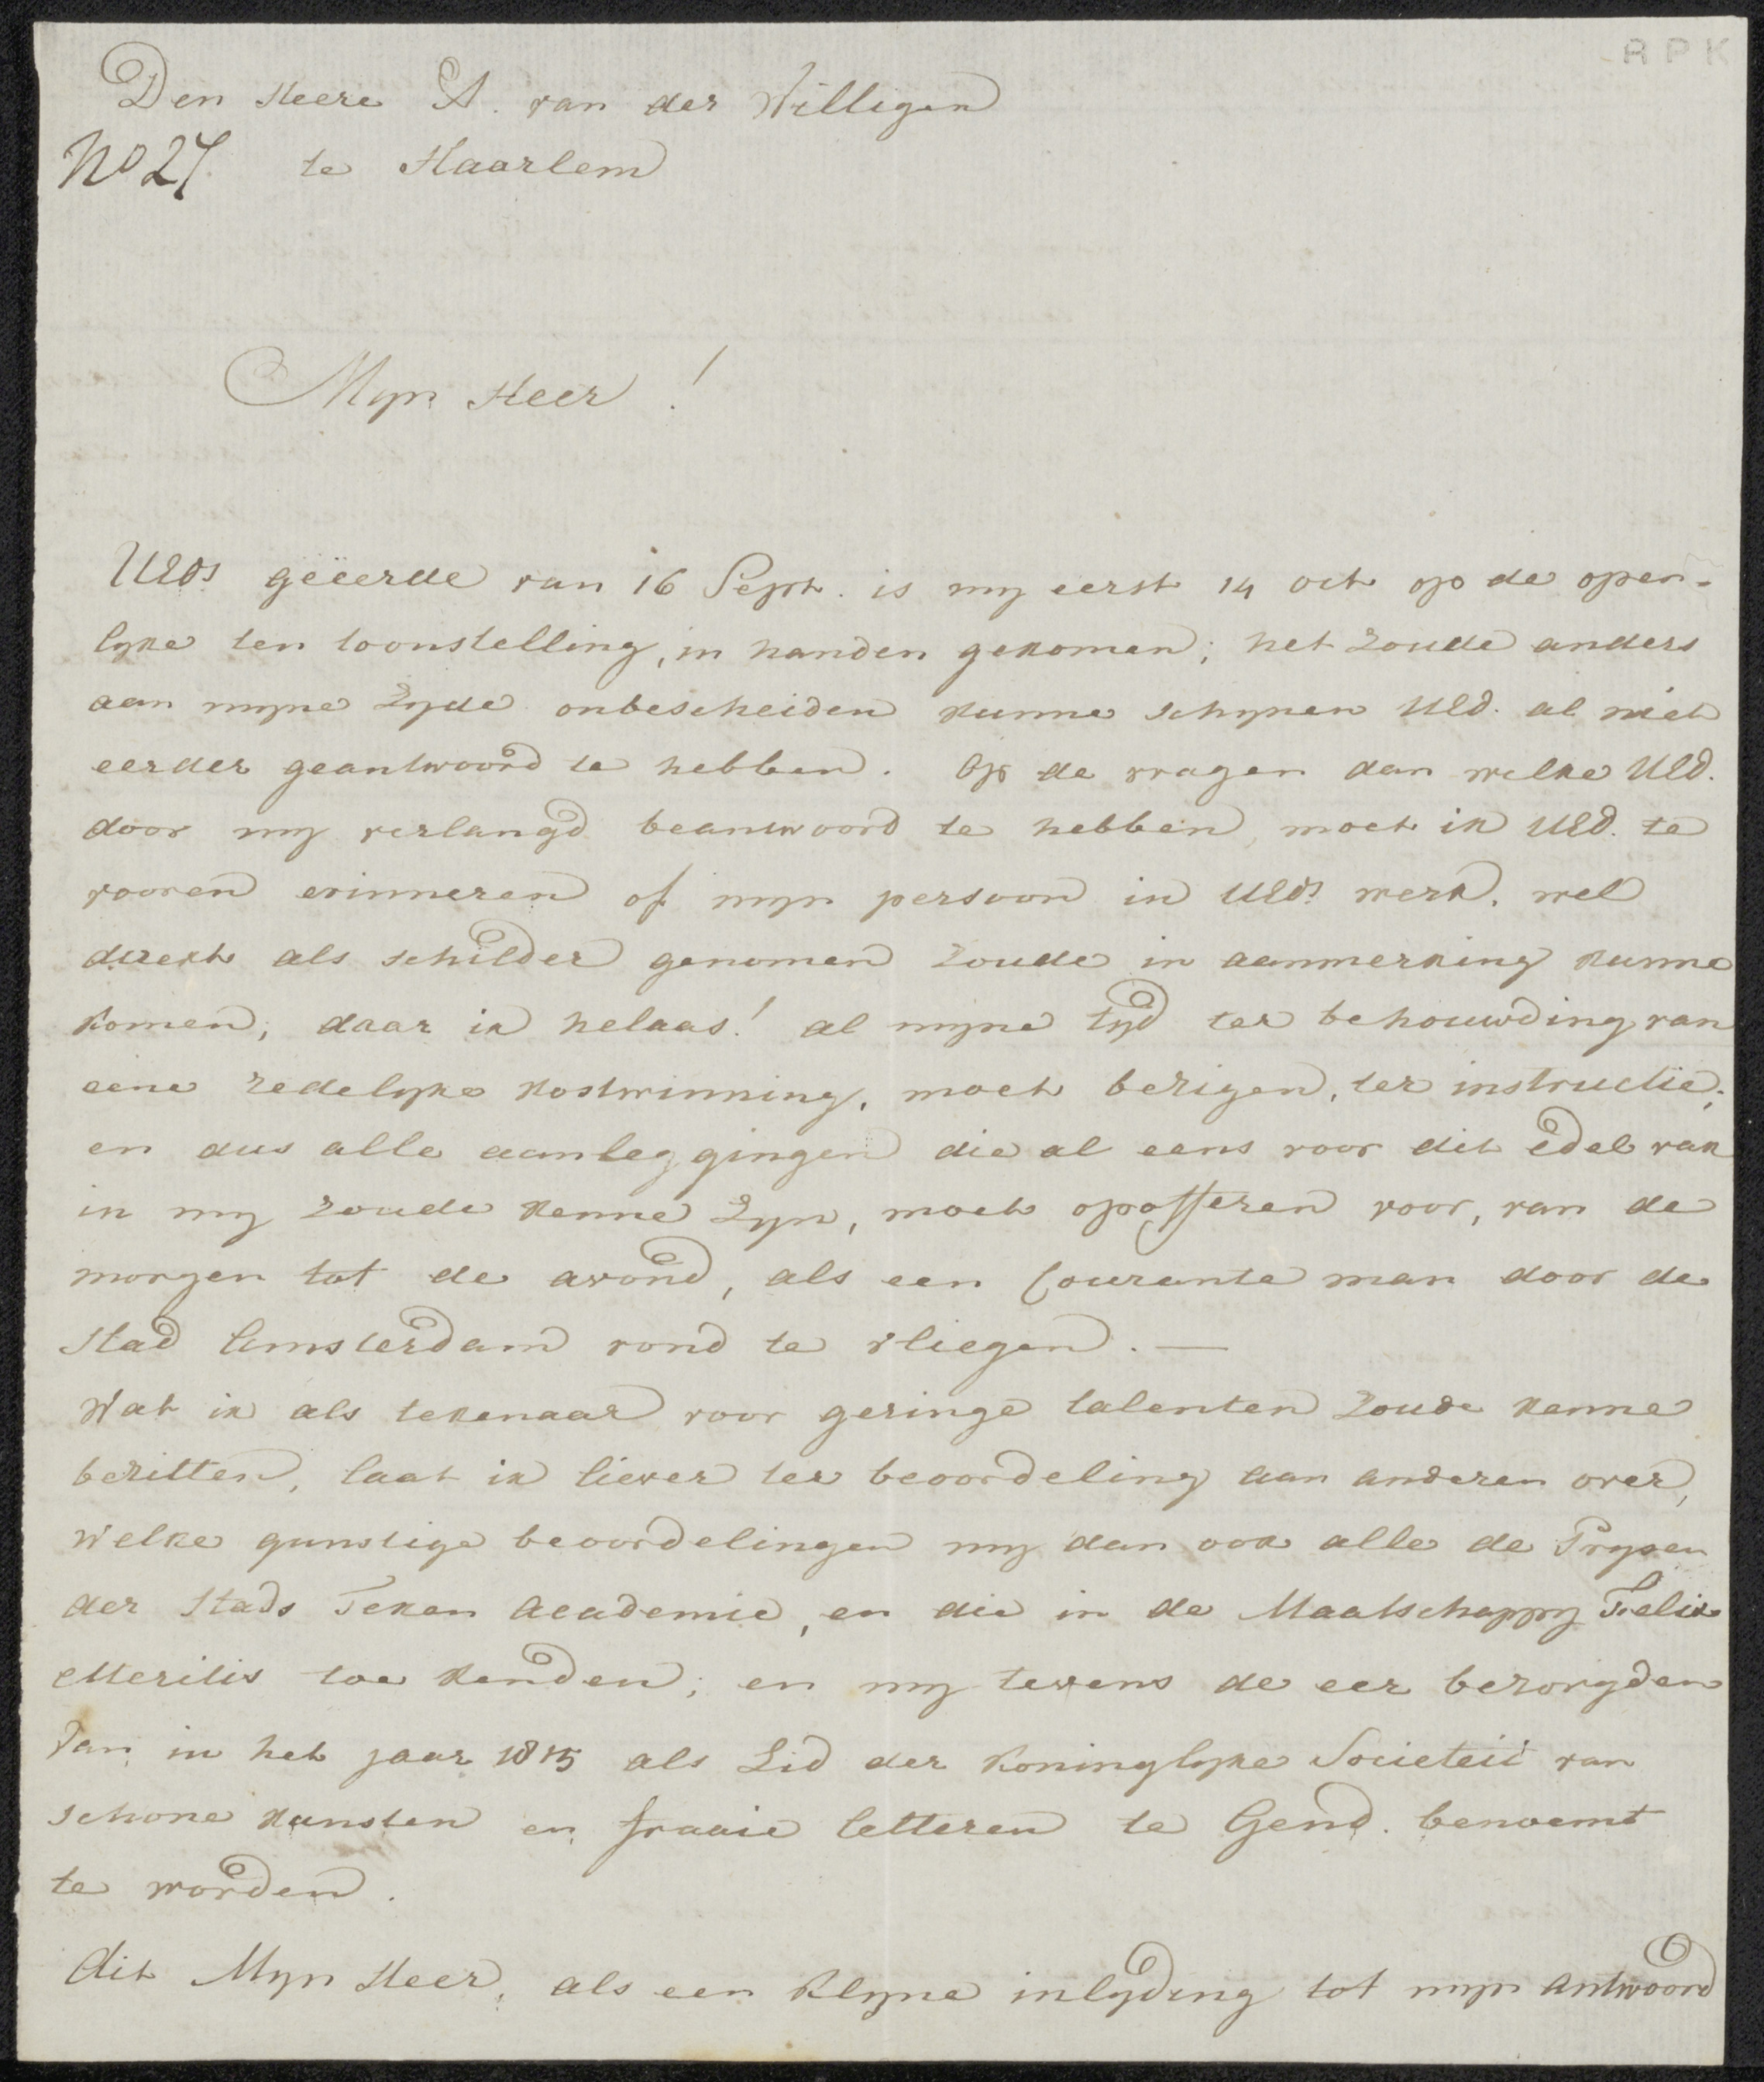 RPK
Den Heere A. van der Willigen
No 27. te Haarlem
Myn Heer!
UEds geëerde van 16 Sept. is my eerst 14 oct op de open-
lyke ten toonstelling, in handen gekomen; het zoude anders
aan myne zyde onbescheiden kunne schynen UEd. al niet
eerder geantwoord te hebben. Op de vragen dan welke UEd.
door my verlangd beantwoord te hebben, moet ik UEd. te
vooren erinneren of myn persoon in UEds werk, wel
direkt als schilder genomen zoude in aanmerking kunne
komen; daar ik helaas! al myne tyd ter behouwding van
eene redelyke kostwinning, moet bezigen, ter instructie;
en dus alle aanleggingen die al eens voor dit edel vak
in my zoude kenne zyn, moet opofferen voor, van de
morgen tot de avond, als een Courante man door de
stad Amsterdam rond te vliegen. —
Wat ik als tekenaar voor geringe talenten zoude kenne
bezitten, laat ik liever ter beoordeling aan anderen over,
welke gunstige beoordelingen my dan ook alle de Prysen
der Stads Teken Academie, en die in de Maatschappy Felix
Meritis toe kenden; en my tevens de eer bezorgden
van in het jaar 1815 als Lid der Koninglyke Societeit van
schone kunsten en fraaie letteren te Gend. benoemt
te worden.
Dit Myn Heer, als een klyne inlyding tot myn antwoord